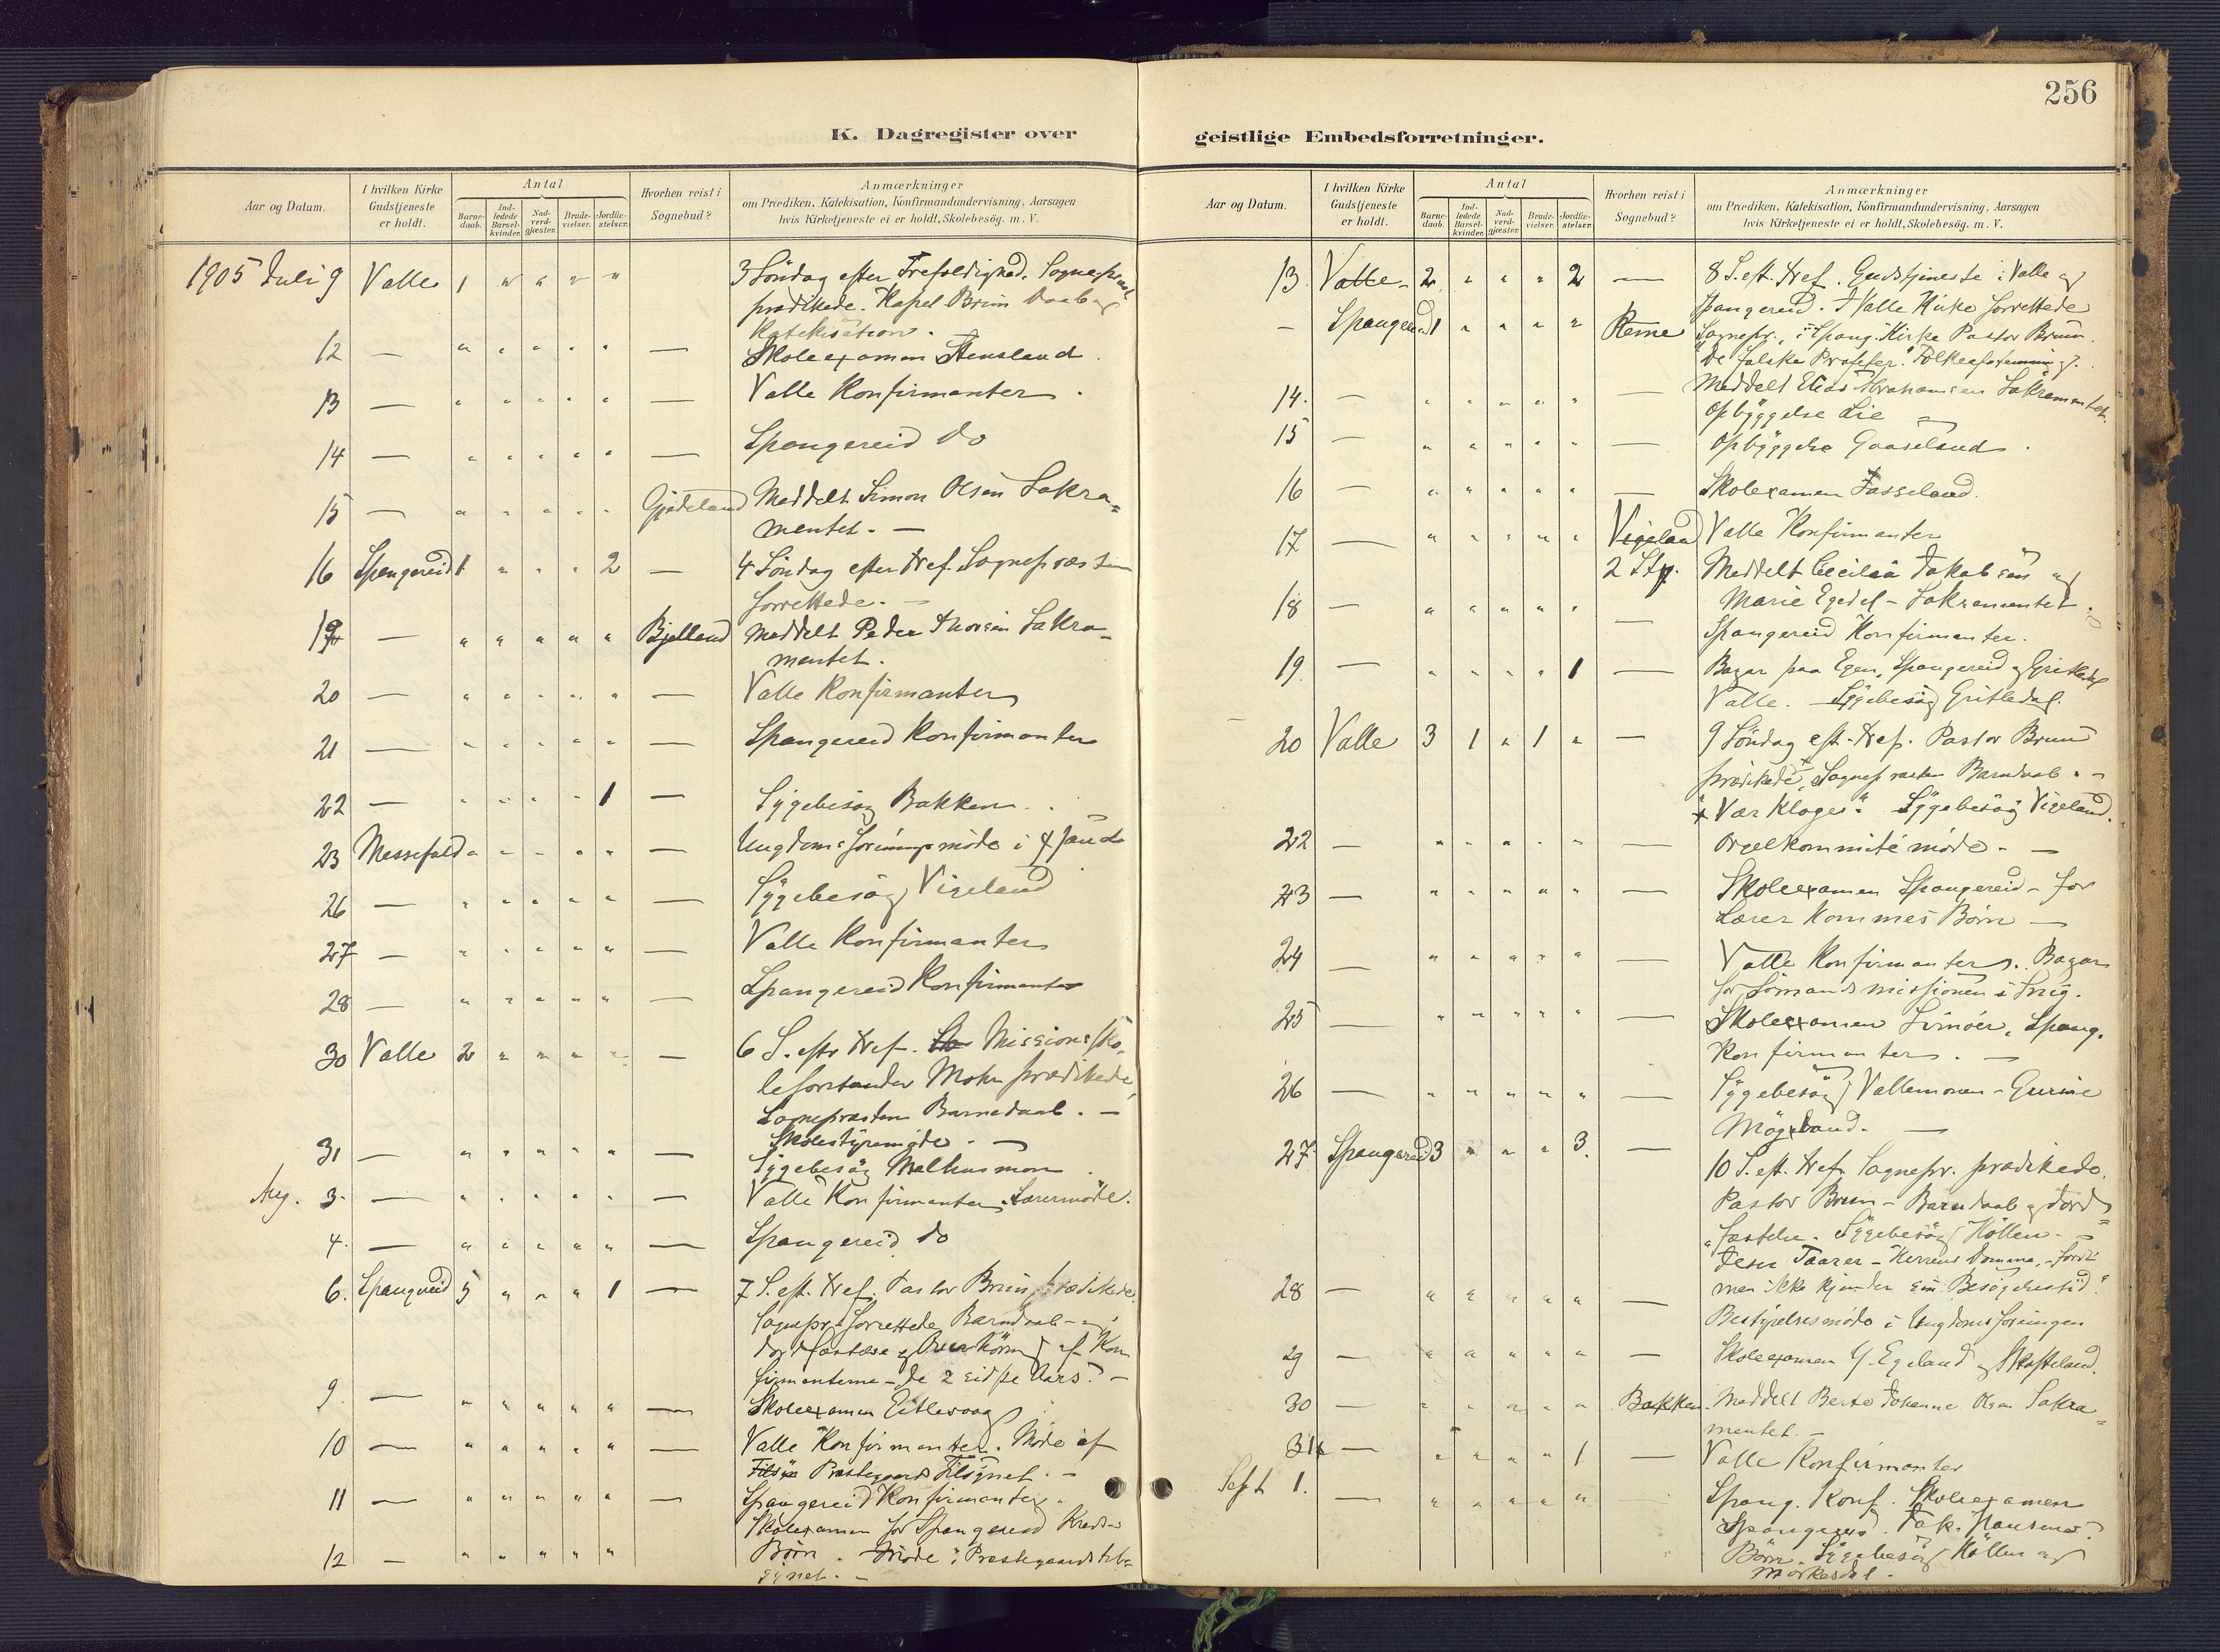 K. Dagregister over
Aar og Datum.
I hvilken Kirke
Gudstjeneste
er holdt.
Antal
Barne-
daab.
Ind-
ledede
Barsel-
kvinder.
Nad-
verd-
gjæster.
Brude-
vielser.
Jordfæ-
stelser.
Hvorhen reist i
Sognebud?
Anmærkninger
om Prædiken, Katekisation, Konfirmandundervisning, Aarsagen
hvis Kirketjeneste ei er holdt, Skolebesög. m. V.
1905 Juli 9 Valle 1 " " " " 3 Söndag efter Trefoldighed. Sognepræst
prædikede. Kapel Brun Daab og
Katekisation.
12 — " " " " " — Skoleexamen Stensland.
13 — " " " " " — Valle Konfirmanter.
14 — " " " " " — Spangereid do
15 — " " " " " Gjideland Meddelt Simon Olsen Sakra-
mentet. —
16 Spangereid 1 " " " 2 — 4 Söndag efter Tref. Sognepræsten
forrettede. —
19 — " " " " " Bjelland Meddelt Peder Thorsen Sakra-
mentet.
20 — " " " " " — Valle Konfirmanter
21 — " " " " " — Spangereid Konfirmanter
22 — " " " " 1 — Sygebesög Bakken.
23 Messefald " " " " " — Ungdomsforeningsmöde i
26 — " " " " " — Sygebesög Vigeland
27 — " " " " " — Valle Konfirmanter
28 — " " " " " — Spangereid Konfirmanter
30 Valle 2 " " " " — 6 S. eftr Tref. Missionssko-
leforstander Mohn prædikede,
Sognepræsten Barnedaab. —
31 — " " " " " — Skolestyremöde. —
Sygebesög Melhusmon
Aug. 3. — " " " " " — Valle Konfirmanter. Lærermöde.
4. — " " " " " — Spangereid do
6. Spangereid 5 " " " 1 — 7 S. eft. Tref. Pastor Brun prædikede.
Sognepr. forrettede Barnedaab - og
Jordfæstelse og Overhöring af Kon
firmanterne -
9. — " " " " " — Skoleexamen Eitlevaag
10 — " " " " " — Valle Konfirmanter. Möde af
Præstegaards Tilsynet. -
11 — " " " " " — Spangereid Konfirmanter.
Skoleexamen for Spangereid Kreds
12 — " " " " " Börn. Möde i Præstegaardstil-
synet. -
256
geistlige Embedsforretninger.
Aar og Datum.
I hvilken Kirke
Gudstjeneste
er holdt.
Antal
Barne-
daab.
Ind-
ledede
Barsel-
kvinder.
Nad-
verd-
gjæster.
Brude-
vielser.
Jordfæ-
stelser.
Hvorhen reist i
Sognebud?
Anmærkninger
om Prædiken, Katekisation, Konfirmandundervisning, Aarsagen
hvis Kirketjeneste ei er holdt, Skolebesög. m. V.
13. Valle - 2 " " " 2 — 8 S. eft. Tref. Gudstjeneste i Valle og
Spangereid. I Valle Kirke forrettede
— Spangereid 1 " " " " Reme Sognepr., i Spang. Kirke Pastor Brun.
"De falske Profeter." Folkeafstemning.
Meddelt Elias Abrahamsen Sakramentet.
14. — " " " " " — Opbyggelse Lie
15 — " " " " " — Opbyggelse Gaaseland.
16 — " " " " " — Skoleexamen Jasseland.
17 — " " " " " Vigeland Valle Konfirmanter
2 Stp. Meddelt Cecilia Jakobsen og
Marie Egedal - Sakramentet.
18 — " " " " " — Spangereid Konfirmanter.
19 — " " " " 1 — Bazar paa Egen, Spangereid og Gritledal
Valle. — Sygebesög Gritledal.
20 Valle 3 1 " 1 " — 9 Söndag eft. Tref. Pastor Brun
prædikede, Sognepræsten Barnedaab. -
"Vær Kloge". Sygebesög Vigeland.
22 — " " " " " — Orgelkommité möde. —
23 — " " " " " — Skoleexamen Spangereid - for
Lærer Kommes Börn —
24 — " " " " " — Valle Konfirmanter. Bazar
for Sömandsmissionen i Snig.
25 — " " " " " — Skoleexamen Svinöer, Spang.
Konfirmanter. —
26 — " " " " " — Sygebesög Vallemoen - Gurine
Mögland. —
27. Spangereid 3 " " " 3. — 10 S. eft. Tref. Sognepr. prædikede.
Pastor Brun - Barnedaab og Jord-
fæstelse. Sygebesög Höllen. -
"Jesu Taarer - Herrens Domme, - fordi
man ikke kjender sin Besögelsestid."
28 — " " " " " — Bestyrelsesmöde i Ungdomsforeningen
29 — " " " " " — Skoleexamen Y. Egeland og Skofteland.
30 — " " " " " Bakken. Meddelt Berte Johanne Olsen Sakra-
mentet. —
31 — " " " " 1 — Valle Konfirmanter
Sept 1. — " " " " " — Spang. Konf. Skoleexamen
Spangereid. Jak. Hansens
Börn. Sygebesög Höllen og